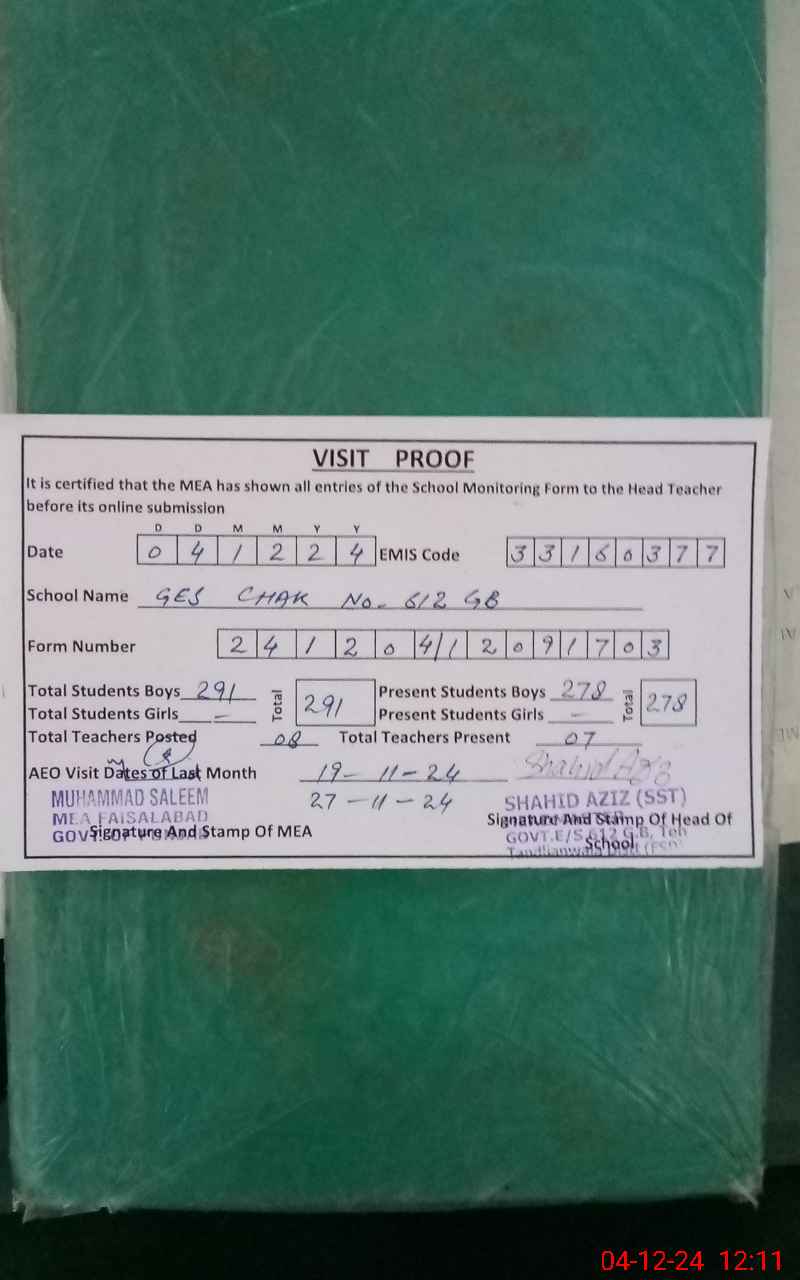 VISIT PROOF
It is certified that the MEA has shown all entries of the School Monitoring Form to the Head Teacher
before its online submission
D D M M Y Y
Date 0 4 1 2 2 4 EMIS Code 3 3 1 6 0 3 7 7
School Name GES CHAK No. 612 GB
Form Number 2 4 1 2 0 4/1 2 0 9 1 7 0 3
Total Students Boys 291 Total 291 Present Students Boys 278 Total 278
Total Students Girls - Present Students Girls -
Total Teachers Posted 08 Total Teachers Present 07
AEO Visit Dates of Last Month 19-11-24 Shahid Aziz
27-11-24
MUHAMMAD SALEEM SHAHID AZIZ (SST)
MEA FAISALABAD
Signature And Stamp Of MEA Signature And Stamp Of Head Of
GOVT. GOVT.E/S 612 G.B, Teh
School
Tandlianwala Distt
04-12-24 12:11